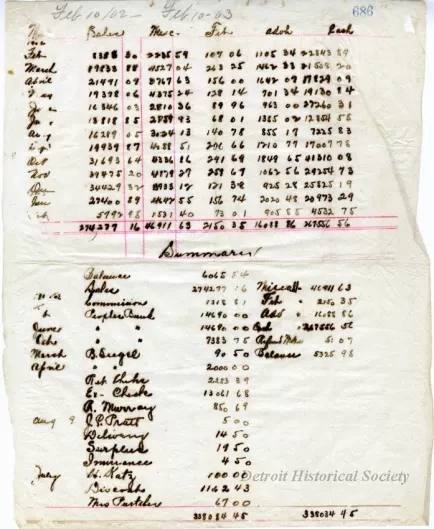 Feb 10/02 - Feb 10-03
686
Sales Misc Frt Adch Cash
Feb 8388 30 2235 59 107 06 1105 34 22843 89
March 39833 88 4527 04 263 25 1462 33 21505 20
April 21491 09 3767 63 156 00 1642 09 17829 09
19378 06 4375 24 128 14 701 34 19130 84
16346 03 2810 36 89 96 963 00 27260 31
13818 85 68 01 1385 02 12854 55
Aug 16289 05 3024 13 140 78 855 17 7325 83
19939 87 4288 51 1210 77 17007 78
Oct 31693 64 4336 86 291 69 1849 65 41310 08
Nov 39475 20 4879 27 259 67 1062 56 29254 73
34429 32 121 38 925 28 25825 19
Jan 27400 89 4642 55 156 74 2020 48 20973 29
5792 98 1531 40 73 01 905 85 4532 75
274277 16 46911 63 2150 35 16088 86 267556 56
Summary
Balance 6065 54
Sales 274277 16 46911 63
Commission 1318 81 Frt " 2150 35
Peoples Bank 14690 00 Adv " 16088 86
June " " 14690 00 Cash " 267556 56
" " 7383 75 51 07
March B. Siegel 90 50 Balance 5325 98
April " " 2000 00
Ret Checks 2283 89
Ex - Check 13061 68
R. Murray 850 69
Aug 9 J. P. Pratt 5 00
Delivery 14 50
Surplus 19 50
Insurance 4 50
July H. Katz 100 00
Discount 1162 43
Mrs 67 00
338084 45 338034 45
Detroit Historical Society